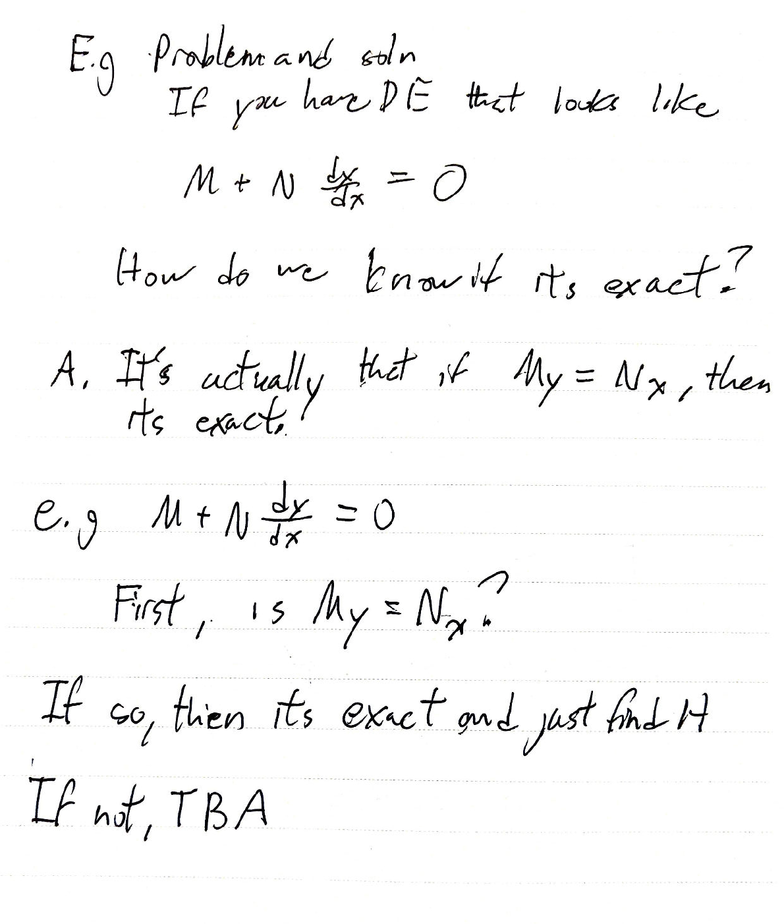 E.g Problem and soln
If you have DE that looks like
M + N dy/dx = 0
How do we know if its exact?
A. It's actually that if My = Nx, then
its exact!
e.g M + N dy/dx = 0
First, is My = Nx?
If so, then its exact and just find H
If not, TBA